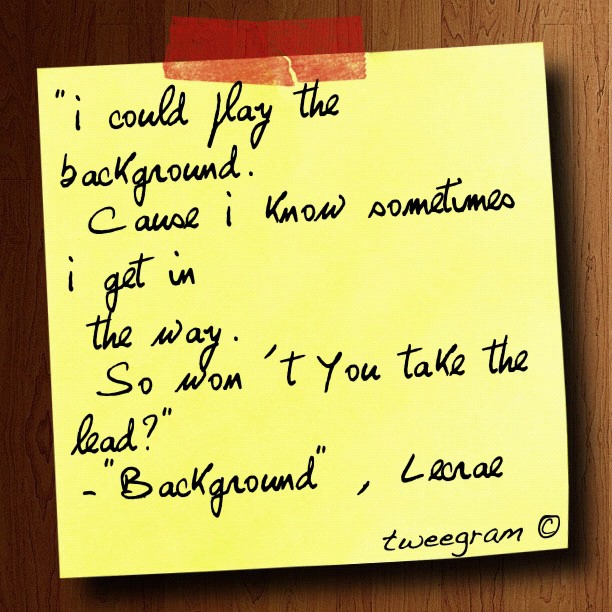 "i could play the
background.
Cause i know sometimes
i get in
the way.
So won 't You take the
lead?"
-"Background" , Lecrae
tweegram ©